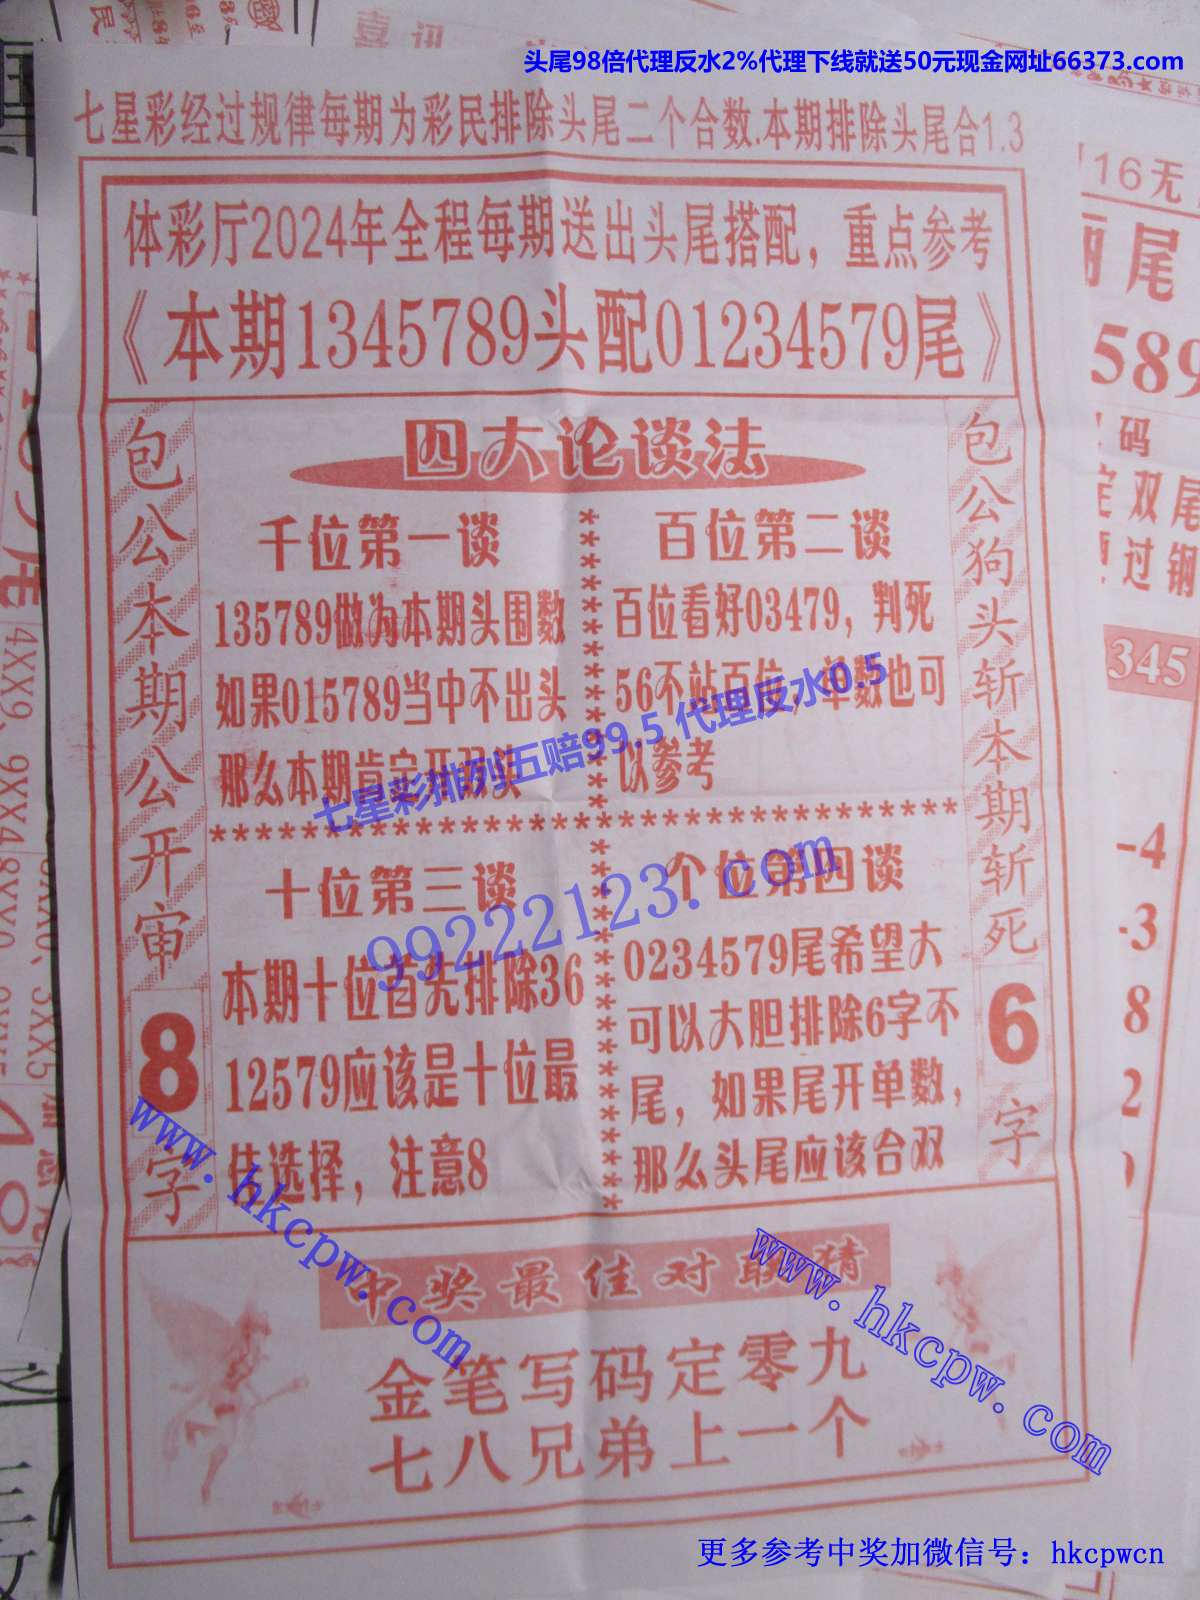 头尾98倍代理反水2%代理下线就送50元现金网址66373.com
七星彩经过规律每期为彩民排除头尾二个合数.本期排除头尾合1.3
体彩厅2024年全程每期送出头尾搭配，重点参考
《本期1345789头配01234579尾》
包公本期公开审8字
四大论谈法
千位第一谈
135789做为本期头围数
如果015789当中不出头
那么本期肯定开双头
百位第二谈
百位看好03479，判死
56不站百位，单数也可
以参考
七星彩排列五赔99.5 代理反水0.5
99222123.com
十位第三谈
本期十位首先排除36
12579应该是十位最
佳选择，注意8
个位第四谈
0234579尾希望大
可以大胆排除6字不
尾，如果尾开单数，
那么头尾应该合双
包公狗头斩本期斩死6字
www.hkcpw.com
www.hkcpw.com
中奖最佳对联猜
金笔写码定零九
七八兄弟上一个
更多参考中奖加微信号：hkcpwcn
16无
尾
589
码
双尾
过钢
345
-4
-3
8
2
4XX9、9XX4